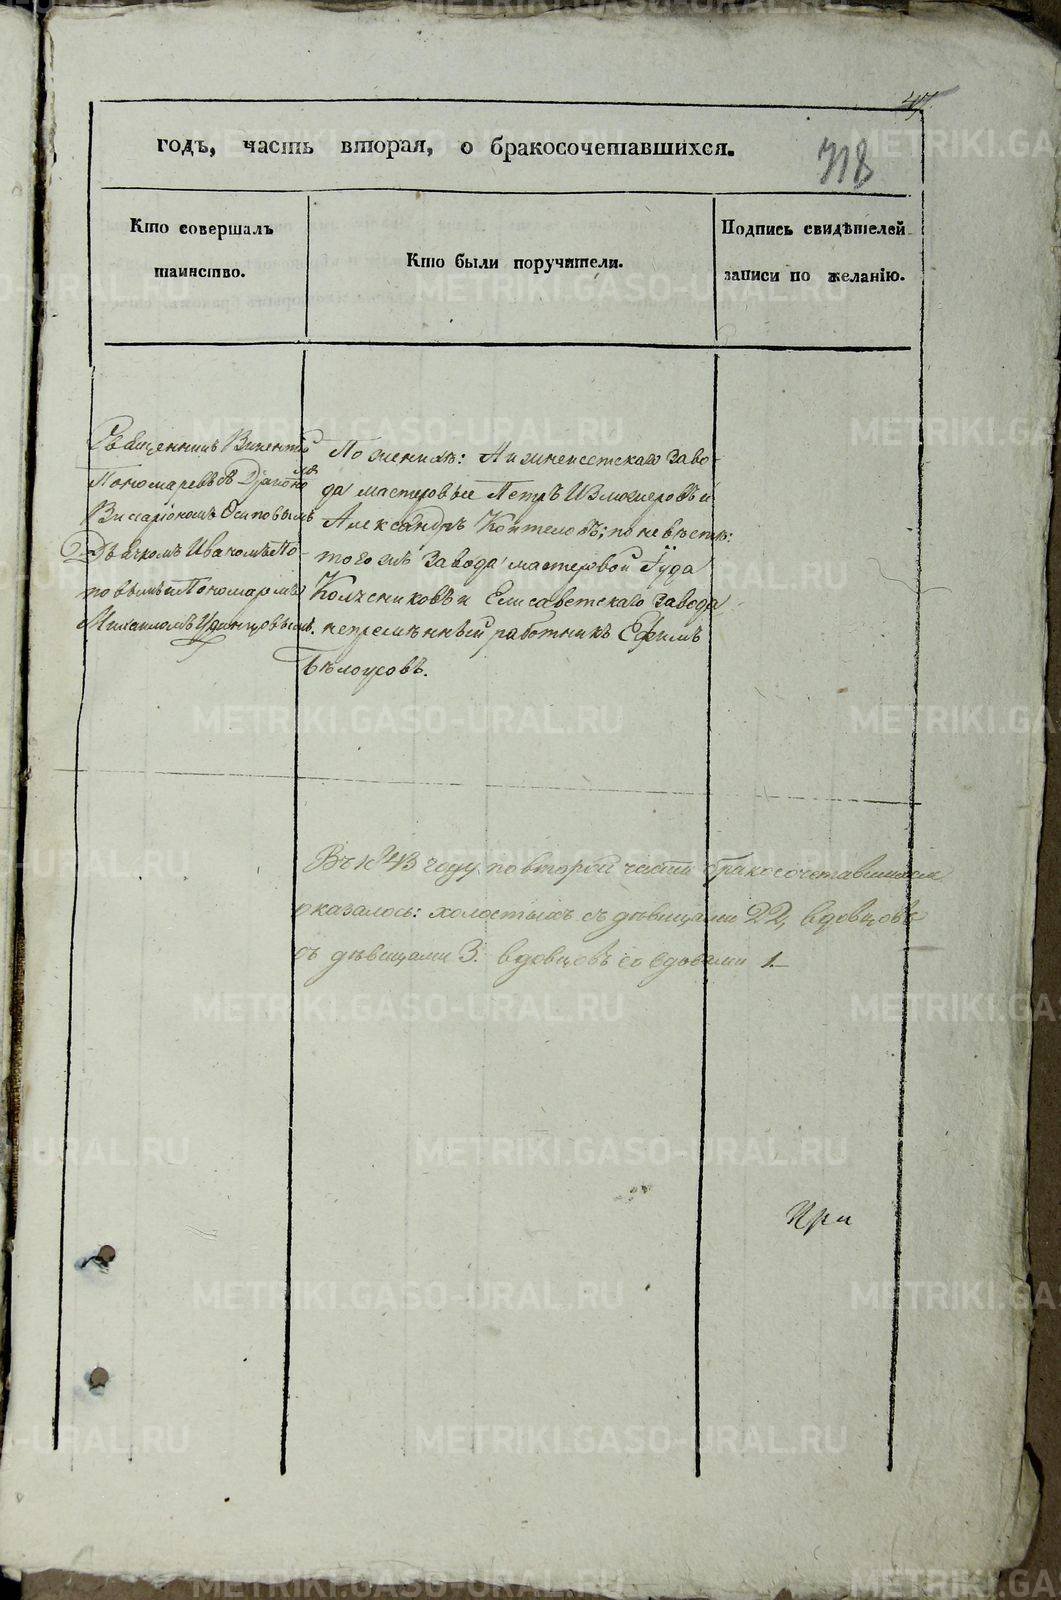 47.
718
годъ, часть вторая, о бракосочетавшихся.
Кто совершалъ
таинство.
Кто были поручители.
Подпись свидѣтелей
записи по желанію.
Священникъ Викентій
Пономаревъ съ Діакономъ
Висаріономъ Осиповымъ
Дьячкомъ Иваномъ По-
повымъ и Пономаремъ
Михаиломъ
По женихѣ: Нижнеисетскаго Заво-
да мастеровые Петръ Изможеровъ и
Александръ Коптеловъ; по невѣстѣ:
тогожъ Завода мастеровой Іуда
Колчениковъ и Елисаветскаго Завода
непремѣнный работникъ Ефимъ
Бѣлоусовъ.
Въ 1843 году по второй части бракосочетавшихся
оказалось: холостыхъ съ дѣвицами 22, вдовцовъ
съ дѣвицами 3. вдовцовъ со вдовами 1.
При
METRIKI.GASO-URAL.RU